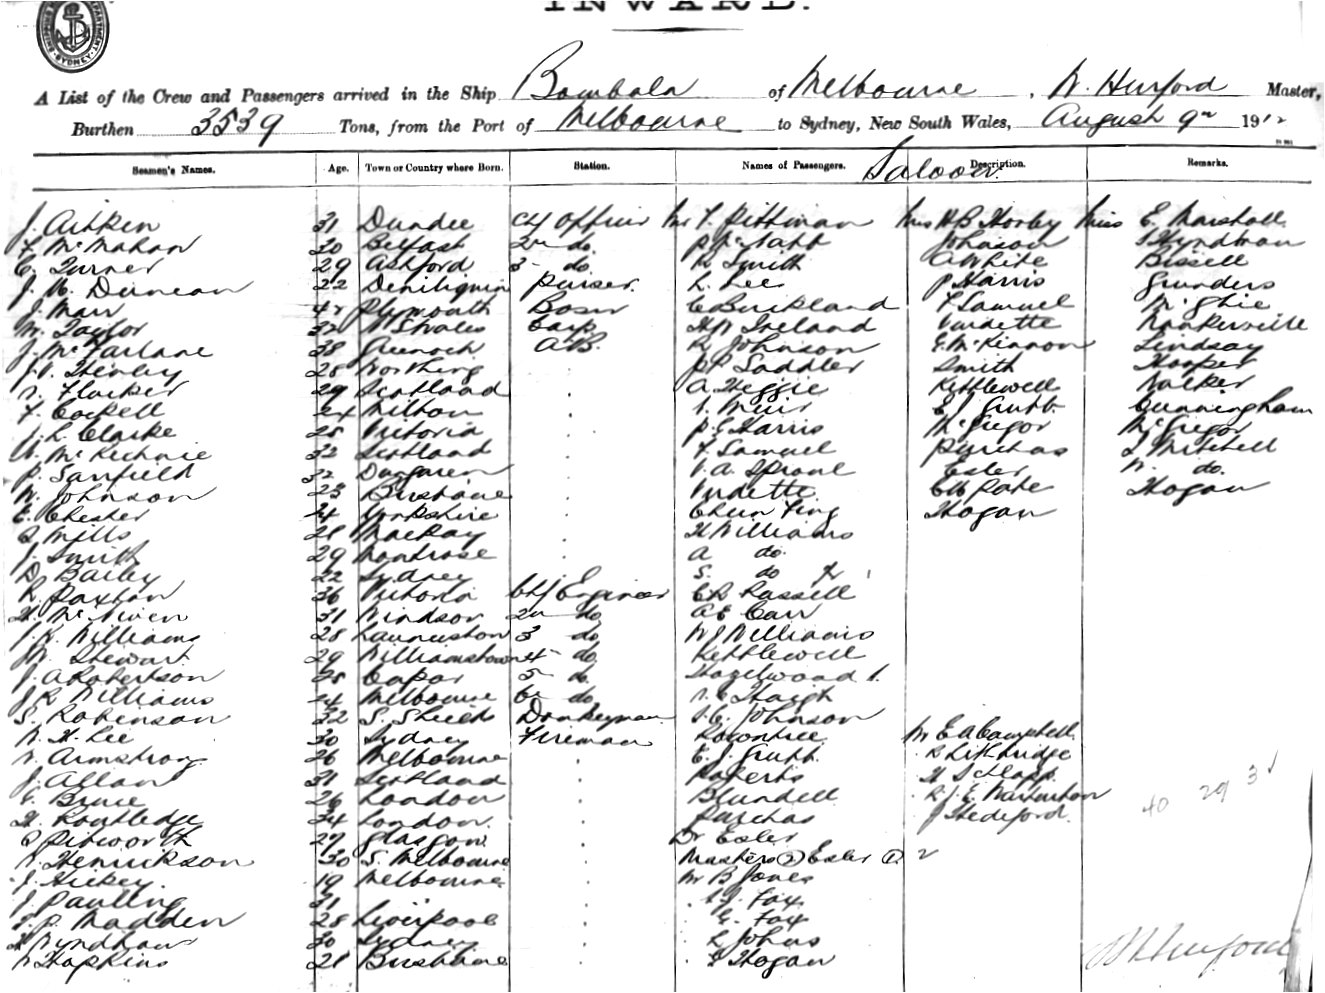 INWARD.
A List of the Crew and Passengers arrived in the Ship Bombala of Melbourne, W. Hurford Master,
Burthen 3539 Tons, from the Port of Melbourne to Sydney, New South Wales, August 9th 1912
Saloon
Seamen's Names. Age. Town or Country where Born. Station. Names of Passengers. Description. Remarks.
J. Aitken 31 Dundee Chf Officer Mr T. Pittman Mrs H B Horby Miss E. Marshall
F. McMahan 30 Belfast 2nd do. Johnson Hyndman
C. Turner 29 Ashford 3 do. Smith A White Bissell
J. M. Duncan 22 Deniliquin Purser. L. Lee P Harris Grunders
J. Marr Plymouth Bosn C Buickland F Samuel McGhie
W. Taylor 32 N S Wales Carp H W Ireland Vudette Nankerville
J. McFarlane 38 Greenock A.B. R Johnson E. McKinnon Lindsay
J. V. Henley 28 Worthing J P Saddler Smith Hooper
Flocker 29 Scotland A Heggie Kettlewell Walker
F. Cockell 24 Milton Muir E J Grubb Cunningham
J. L. Clarke 28 Victoria P G Harris McGregor McGregor
McKechnie 32 Scotland F Samuel Purchas J Mitchell
P. Sanfield 32 Dungarven V. A. Sproul Esler W. do.
W. Johnson 23 Brisbane Vudette Pate Hogan
E. Chester 24 Yorkshire Chun Fing Hogan
Mills 21 Mackay H Williams
J. Smith 29 Montrose A do.
D. Bailey 22 Sydney S. do
R. Paxton 36 Victoria Chf Engineer C R Russell
H. McNiven 31 Windsor 2nd do A E Carr
J. H. Williams 28 Launceston 3 do W J Williams
J W. Stewart 29 Williamstown 4 do Kettlewell
J. A Robertson 25 Capar 5 do Hazelwood
J. R. Williams 24 Melbourne 6th do Haigh
S. Robenson 32 S. Shields Donkeyman Johnson
W. H. Lee 30 Sydney Fireman Rowntree Mr E A Campbell
Armstrong 26 Melbourne E. J. Grubb R Lethbridge
J. Allan 31 Scotland Roberts H Schlapp
Bruce 26 London Blundell R. J. E. Warburton
H. Routledge 34 London Purchas J Hedeford.
Pitworth 27 Glasgow Dr Esler
Henrickson 30 S. Melbourne Masters (2) Esler 2
J. Hickey. 19 Melbourne Mr B Jones
J Pauling 31 Fox
Madden 28 Liverpool G. Fox
H Wyndham 30 Sydney L Johns
Hopkins 21 Brisbane Hogan
40 29 3
W Hurford